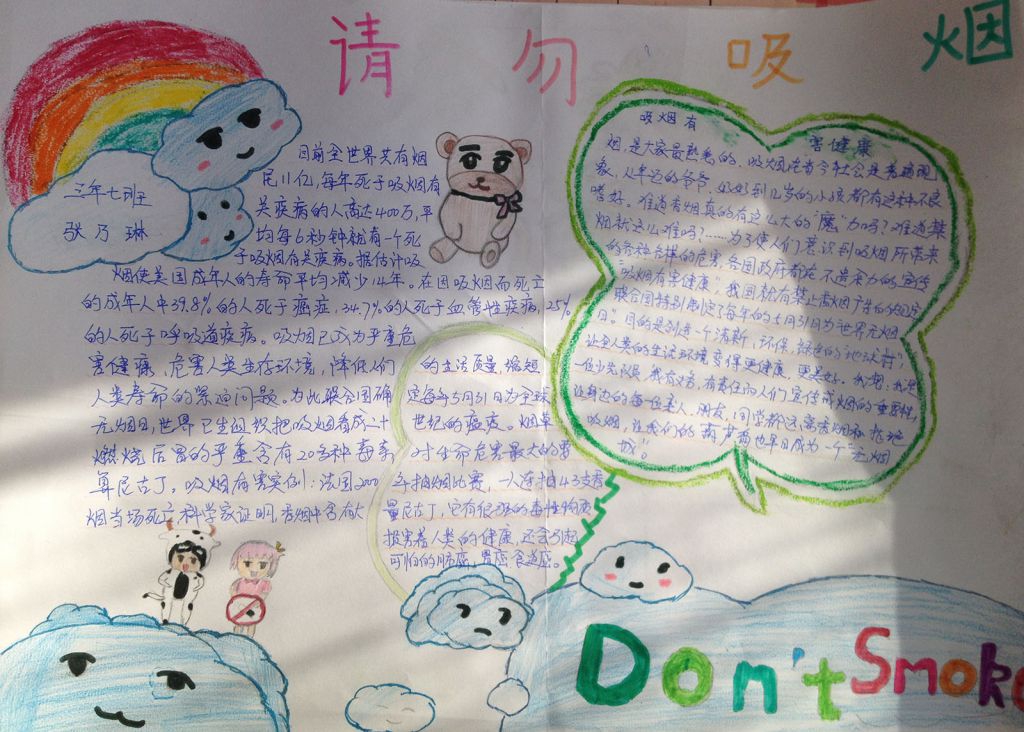 请勿吸烟
三年七班
张乃琳
目前全世界共有烟
民11亿,每年死于吸烟有
关疾病的人高达400万,平
均每6秒钟就有一个死
于吸烟有关疾病。据估计吸
烟使美国成年人的寿命平均减少14年。在因吸烟而死亡
的成年人中39.8%的人死于癌症,34.7%的人死于血管性疾病,25%
的人死于呼吸道疾病。吸烟已成为严重危
害健康,危害人类生存环境,降低人们的生活质量,缩短
人类寿命的紧迫问题。为此联合国确定每年5月31日为全球
无烟日,世界卫生组织把吸烟看成二十世纪的瘟疫。烟草
燃烧后冒的严重含有20多种毒素对生命危害最大的要
算尼古丁。吸烟有害实例:法国2000年抽烟比赛,一人连抽43支香
烟当场死亡科学家证明,香烟中含有大量尼古丁,它有很强的毒性物质
损害着人类的健康,还会引起
可怕的肺癌,胃癌,食道癌。
吸烟有害健康
烟,是大家最熟悉的,吸烟在当今社会是普遍现
象,从年迈的爷爷、奶奶到几岁的小孩都有这种不良
嗜好。难道香烟真的有这么大的“魔”力吗?难道禁
烟就这么难吗?……为了使人们意识到吸烟所带来
的各种各样的危害,各国政府都在不遗余力的宣传
“吸烟有害健康”,我国就有禁止香烟广告的规定
联合国特别制定了每年的5月31日为世界无烟
日。目的是创造一个清新、环保、绿色的地球村,
让全人类的生活环境变得更健康,更美好。我想,我是
一位少先队员,我有义务,有责任向人们宣传戒烟的重要性,
让身边的每一位亲人、朋友、同学都远离香烟和拒绝
吸烟,让我们的葫芦岛也早日成为一个“无烟
城”!
Don't Smoke